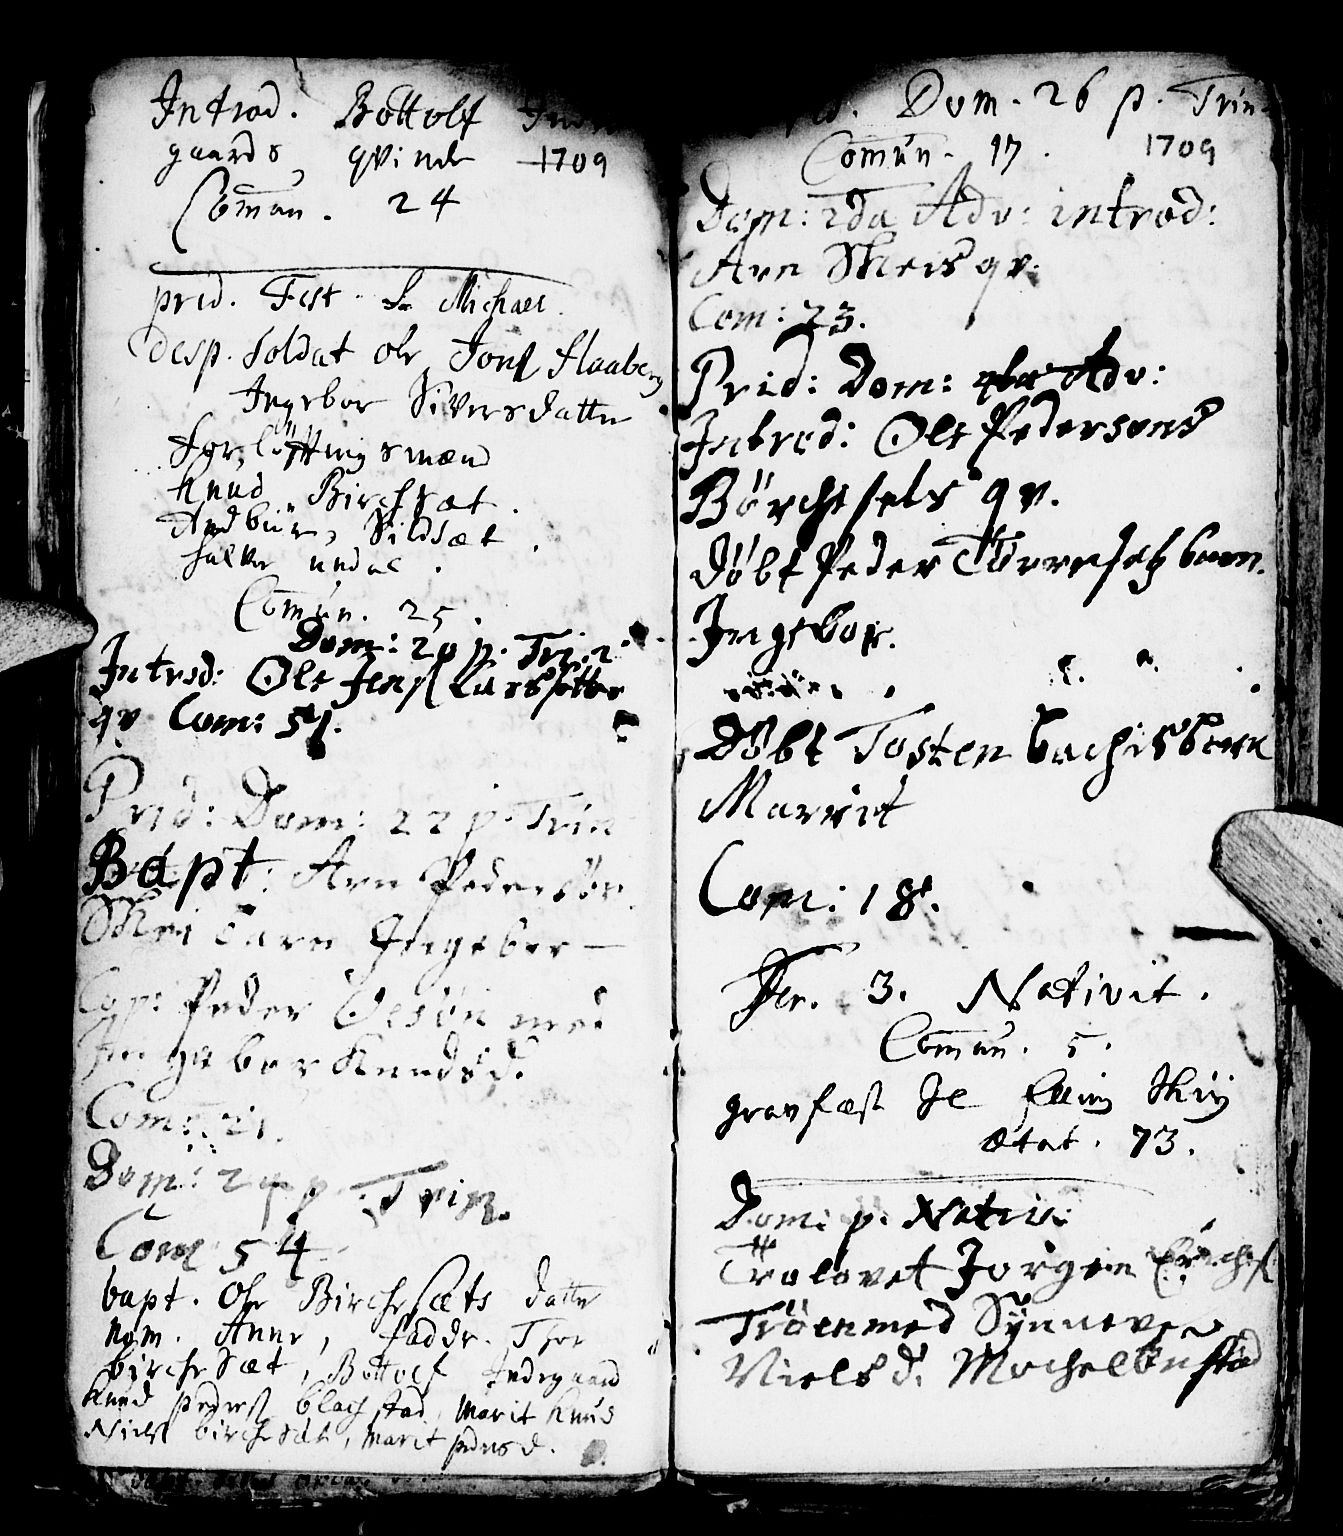 Introd. Bottolf Ind
gaards qvinde 1709
Comun. 24
prid. Fest. S. Michael.
desp. Soldat Ole Jons Haaberg
Ingebor Siversdatter
forløftningsmænd
Knud Birchsæt.
Sildsæt.
halvor undal.
Comun. 25.
Dom: 20 p. Trin.
Introd: Ole Jens
qv Com: 51.
Prid: Dom: 22 p. Trin
Bapt: Arn Pedersøn
Skei barn Ingebor
Cop: Peder Olesøn med
Ingebor Knudsd.
Com: 21.
Dom: 24 p. Trin.
Com 54
bapt. Ole Birchesæts datter
nom. Anne, faddr. Thor
birchesæt, Bottolf Indegaard
Knud peders blachstad, Marit Knuds
Niels birchesæt, Marit pedersd.
Dom. 26 p. Trin.
Comun. 17. 1709
Dom: 2da Adv: introd:
Arn Skeis qv.
Com: 23.
Prid: Dom: 4ta Adv:
Introd: Ole Pedersøns
Børchesets qv.
døbt Peder barn.
Ingebor.
Døbt Tosten bachis barn
Marrit
Com: 18.
Fer. 3. Nativit.
Comun. 5.
gravfæst Elling
ætat. 73.
Dom: p. Nativ:
Trolovet Jørgen
Trøen med Synneve
Nielsd. Mochelbustad